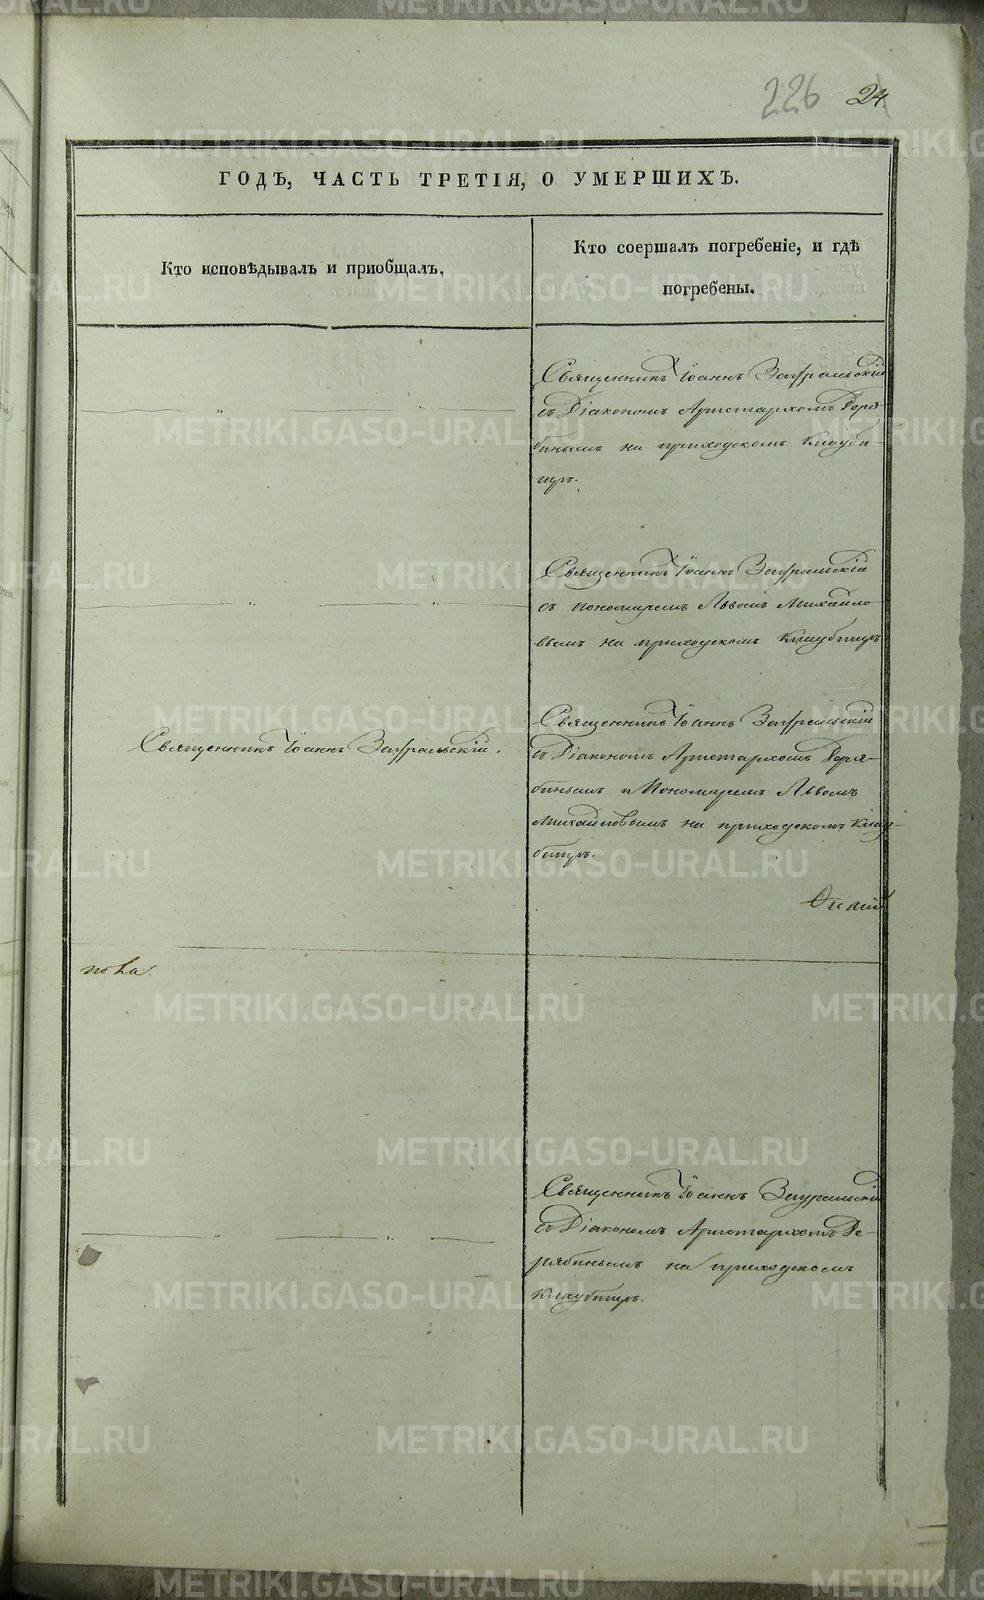 226 24.
ГОДѢ, ЧАСТЬ ТРЕТІЯ, О УМЕРШИХЪ.
Кто исповѣдывалъ и приобщалъ,
Кто соершалъ погребеніе, и гдѣ
погребены.
Священникъ Іоаннъ Зауральскій
съ Діакономъ Аристархомъ Деря-
бинымъ на приходскомъ Кладби-
щѣ.
Священникъ Іоаннъ Зауральскій
съ пономаремъ Львомъ Михайло-
вымъ на приходскомъ Кладбищѣ
Священникъ Іоаннъ Зауральскій.
Священникъ Іоаннъ Зауральскій
съ Діакономъ Аристархомъ Деря-
бинымъ и Пономаремъ Львомъ
Михайловымъ на приходскомъ Клад-
бищѣ.
Священникъ Іоаннъ Зауральскій
съ Діакономъ Аристархомъ Де-
рябинымъ на приходскомъ
Кладбищѣ.
METRIKI.GASO-URAL.RU